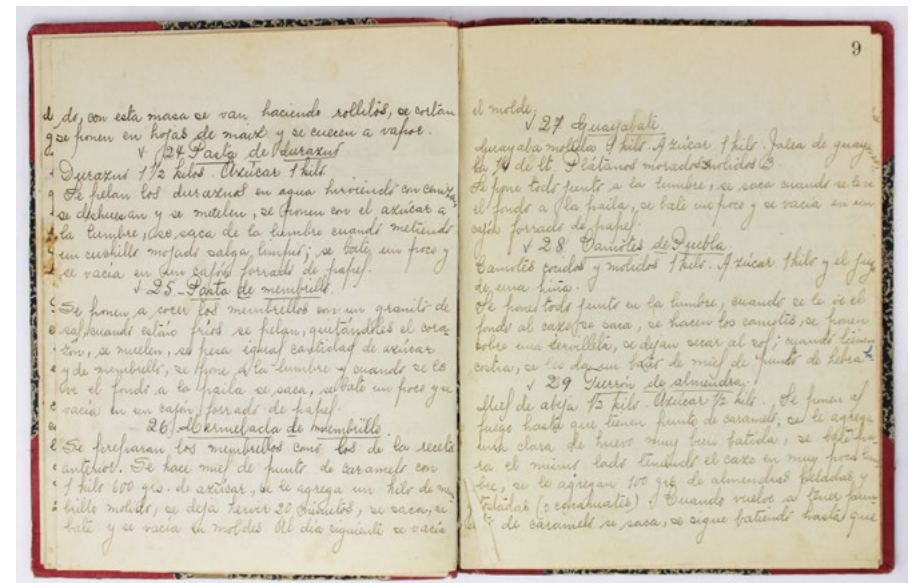 do, con esta masa se van haciendo rollitos, se cortan
se ponen en hojas de maiz y se cuecen a vapor.
24 Pasta de durazno
Durazno 1 1/2 kilos. Azúcar 1 kilo.
Se pelan los duraznos en agua hirviendo con ceniza,
se deshuesan y se muelen, se ponen con el azúcar a
la lumbre, se saca de la lumbre cuando metiendo
un cuchillo mojado salga limpio; se bate un poco y
se vacia en un cajón forrado de papel.
25 - Pasta de membrillo.
Se ponen a cocer los membrillos con un granito de
sal, cuando están frios se pelan, quitándoles el cora-
zón, se muelen, se pesa igual cantidad de azúcar
y de membrillo, se pone a la lumbre y cuando se le
ve el fondo a la paila se saca, se bate un poco y se
vacia en un cajón forrado de papel.
- 26. Mermelada de membrillo
Se preparan los membrillos como los de la receta
anterior. Se hace miel de punto de caramelo con
1 kilo 600 grs. de azúcar, se le agrega un kilo de mem
brillo molido, se deja hervir 20 minutos, se saca, se
bate y se vacia en moldes Al dia siguiente se vacia
9
el molde.
27 Guayabate
Guayaba molida 1 kilo. Azúcar 1 kilo. Jalea de guaya
ba 1/4 de lt. Plátanos morados molidos 3.
Se pone todo junto a la lumbre, se saca cuando se le ve
el fondo a la paila, se bate un poco y se vacia en un
cajón forrado de papel.
28 Camotes de Puebla.
Camotes cocidos y molidos 1 kilo. Azúcar 1 kilo y el jugo
de una piña.
Se pone todo junto en la lumbre, cuando se le ve el
fondo al cazo se saca, se hacen los camotes, se ponen
sobre una servilleta, se dejan secar al sol; cuando tienen
costra, se les da un baño de miel de punto de hebra
29 Turrón de almendra.
Miel de abeja 1/2 kilo. Azúcar 1/2 kilo. Se ponen al
fuego hasta que tienen punto de caramelo, se le agrega
una clara de huevo muy bien batida, se bate pa-
ra el mismo lado teniendo el cazo en muy poca lum
bre, se le agregan 100 grs de almendras peladas y
tostadas (o cacahuates). Cuando vuelve a tener pun
to de caramelo se saca, se sigue batiendo hasta que